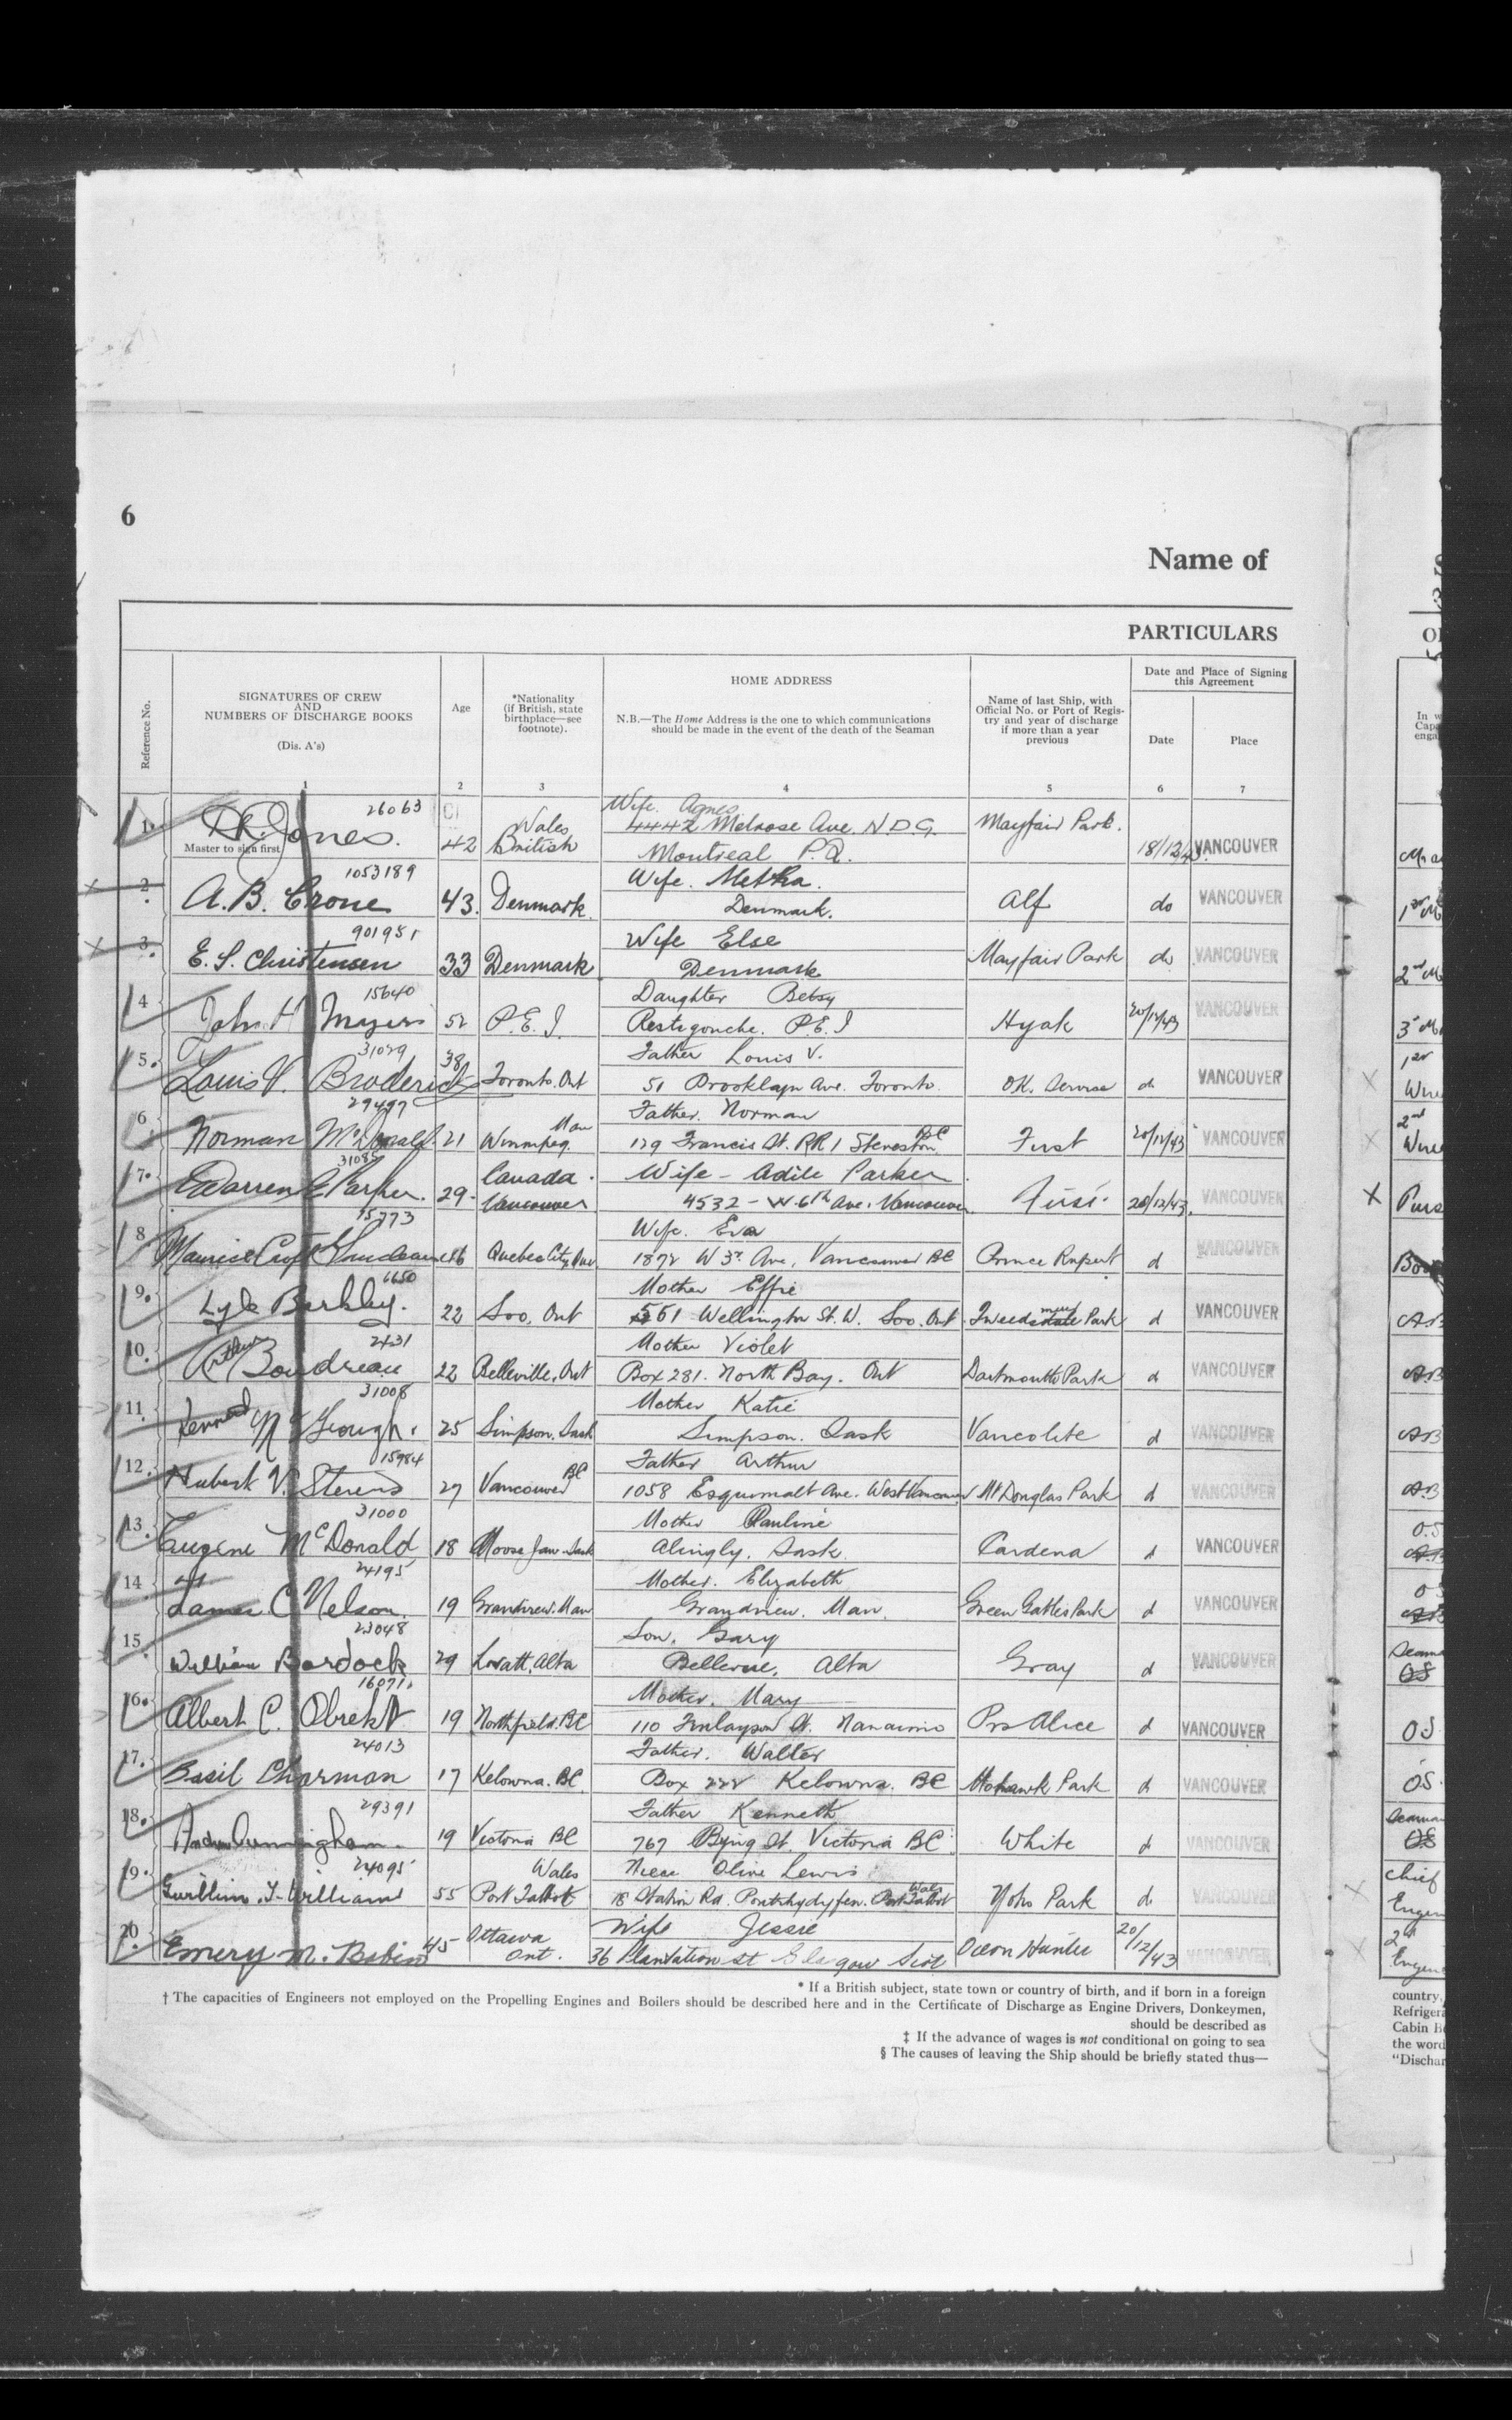 6
Name of
PARTICULARS
Reference No.
SIGNATURES OF CREW
AND
NUMBERS OF DISCHARGE BOOKS
(Dis. A's)
Age
*Nationality
(if British, state
birthplace—see
footnote).
HOME ADDRESS
N.B.—The Home Address is the one to which communications
should be made in the event of the death of the Seaman
Name of last Ship, with
Official No. or Port of Regis-
try and year of discharge
if more than a year
previous
Date and Place of Signing
this Agreement
Date
Place
1 2 3 4 5 6 7
26063 Wales Wife. Agnes
1. Jones. 42 British 4442 Melrose Ave. N.D.G. Mayfair Park. 18/12/43. VANCOUVER
Master to sign first
Montreal P.Q.
1053189 Wife. Metha.
2. A.B. Crone 43. Denmark. Denmark. Alf do VANCOUVER
901951 Wife Else
3. E.S. Christensen 33 Denmark Denmark Mayfair Park do VANCOUVER
15640 Daughter Betsy
4 John H Myers 52 P.E.I. Restigouche. P.E.I Hyak 20/12/43 VANCOUVER
31029 Father Louis V.
5. Louis V. Broderick 38 Toronto. Ont 51 Brooklyn Ave. Toronto. OK. Service do VANCOUVER
29497 Man Father. Norman
6 Norman McDonald 21 Winnipeg. 129 Francis St. RR1 Steveston BC First 20/12/43 VANCOUVER
31085 Canada. Wife - Adile Parker
7. Warren E Parker. 29. Vancouver 4532 - W. 6th Ave. Vancouver First. 20/12/43. VANCOUVER
15773 Wife. Eva
8 Maurice 56 Quebec City, Que 1872 W 3rd Ave, Vancouver BC Prince Rupert d VANCOUVER
6650 Mother Effie
9. Lyle Barkley. 22 Soo, Ont 561 Wellington St. W. Soo. Ont Tweedsmuir Park d VANCOUVER
2431 Mother Violet
10. Arthur Boudreau 22 Belleville, Ont Box 281. North Bay. Ont Dartmouth Park d VANCOUVER
31008 Mother Katie
11. Kenneth McGeough. 25 Simpson. Sask Simpson. Sask Vancolite d VANCOUVER
15984 BC Father Arthur
12. Hubert V. Stevens 27 Vancouver 1058 Esquimalt Ave. West Vancouver Mt Douglas Park d VANCOUVER
31000 Mother Pauline
13. Eugene McDonald 18 Moose Jaw. Sask Alingly. Sask. Cardena d VANCOUVER
24195 Mother. Elizabeth
14 James C Nelson. 19 Grandview. Man Grandview. Man. Green Gables Park d VANCOUVER
23048 Son. Gary
15. William Bardock 29 Lovatt, Alta Bellevue, Alta Gray d VANCOUVER
16071. Mother. Mary
16. Albert C. Obrekt 19 Northfield. BC 110 Finlayson St. Nanaimo Prs Alice d VANCOUVER
24013 Father. Walter
17. Basil Chapman 17 Kelowna. BC. Box 228 Kelowna. BC Mohawk Park d VANCOUVER
29391 Father Kenneth
18. Andrew Cunningham. 19 Victoria BC 767 Byng St. Victoria BC. White d VANCOUVER
24095 Wales Niece Olive Lewis
19. Gwillim. T. Williams 55 Port Talbot 18 Station Rd. Pontrhydyfen. Port Talbot Wales Yoho Park d. VANCOUVER
Ottawa Wife Jessie
20. Emery M. Babin 45 Ont. 36 Plantation St Glasgow Scot Ocean Hunter 20/12/43 VANCOUVER
* If a British subject, state town or country of birth, and if born in a foreign
† The capacities of Engineers not employed on the Propelling Engines and Boilers should be described here and in the Certificate of Discharge as Engine Drivers, Donkeymen,
should be described as
‡ If the advance of wages is not conditional on going to sea
§ The causes of leaving the Ship should be briefly stated thus—
In w
Capa
enga
1st M
2nd M
3rd M
1st
Wire
2nd
Wire
Purs
AB
AB
AB
AB
O.S
OS
Seama
OS
OS
OS
Seaman
OS
Chief
Engin
2nd
Engine
country,
Refrigera
Cabin B
the word
"Dischar